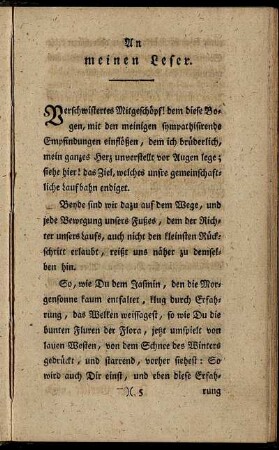 An
meinen Leser.
Verschwistertes Mitgeschöpf! dem diese Bo-
gen, mit den meinigen sympathisirende
Empfindungen einflößen, dem ich brüderlich,
mein ganzes Herz unverstellt vor Augen lege;
siehe hier! das Ziel, welches unsre gemeinschaft-
liche Laufbahn endiget.
Beyde sind wir dazu auf dem Wege, und
jede Bewegung unsers Fußes, dem der Rich-
ter unsers Laufs, auch nicht den kleinsten Rück-
schritt erlaubt, reißt uns näher zu demsel-
ben hin.
So, wie Du dem Jasmin, den die Mor-
gensonne kaum entfaltet, klug durch Erfah-
rung, das Welken weissagest, so wie Du die
bunten Fluren der Flora, jetzt umspielt von
lauen Westen, von dem Schnee des Winters
gedrückt, und starrend, vorher siehest: So
wird auch Dir einst, und eben diese Erfah-
5 rung